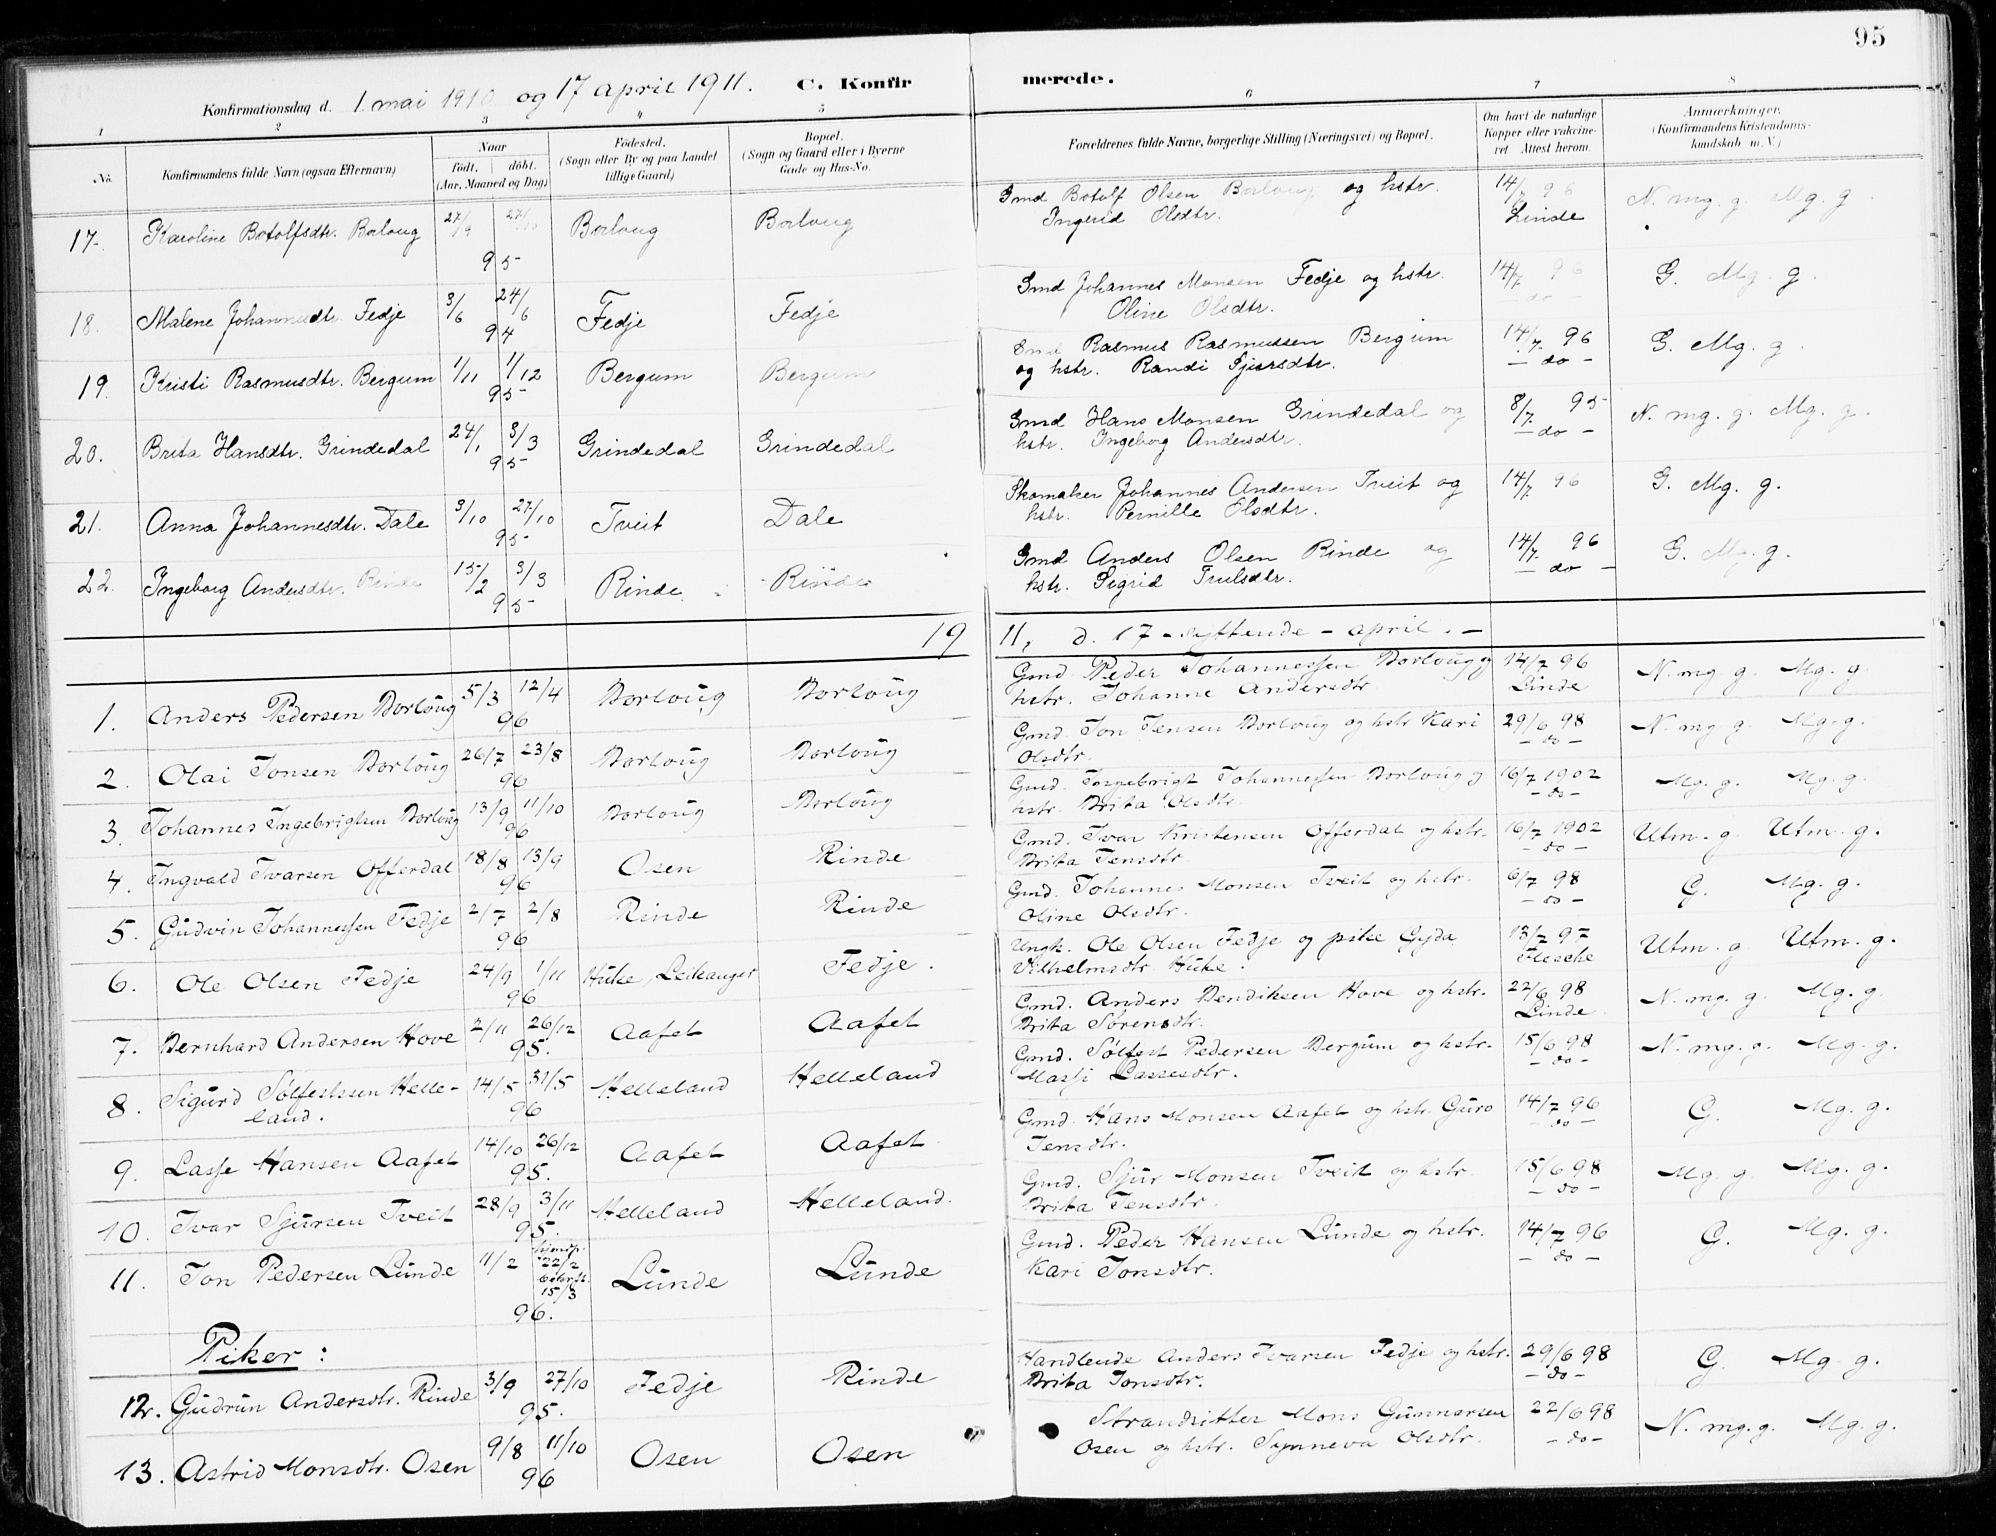 95
Konfirmationsdag d. 1. mai 1910 og 17 april 1911. C. Konfir merede.
1 2 3 4 5 6 7 8
No. Konfirmandens fulde Navn (ogsaa Efternavn) Naar født. døbt. (Aar, Maaned og Dag) Fødested. (Sogn eller By og paa Landet tillige Gaard) Bopæl. (Sogn og Gaard eller i Byerne Gade og Hus-No. Forældrenes fulde Navne, borgerlige Stilling (Næringsvei) og Bopæl. Om havt de naturlige Kopper eller vakcineret. Attest herom. Anmærkninger. (Konfirmandens Kristendomskundskab m. V.)
17. Karoline Botolfsdtr. Borlaug 27/9 27/10 95 Borlaug Borlaug Gmd Botolf Olsen Borlaug og hstr. Ingerid Olsdtr. 14/7 96 Linde N. mg. g. Mg. g.
18. Malene Johannesdtr. Fedje 3/6 24/6 94 Fedje Fedje Gmd Johannes Monsen Fedje og hstr. Oline Olsdtr. 14/7 96 - do - G. Mg. g.
19. Kristi Rasmusdtr. Bergum 1/11 1/12 95 Bergum Bergum Gmd Rasmus Rasmussen Bergum og hstr. Randi Sjursdtr. 14/7 96 - do - G. Mg. g.
20. Brita Hansdtr. Grindedal 24/1 3/3 95 Grindedal Grindedal Gmd Hans Monsen Grindedal og hstr. Ingeborg Andersdtr. 8/7 95 - do - N. mg. g. Mg. g.
21. Anna Johannesdtr. Dale 3/10 27/10 95 Tveit Dale Skomaker Johannes Andersen Tveit og hstr. Pernille Olsdtr. 14/7 96 G. Mg. g.
22. Ingeborg Andersdtr. Rinde 15/2 3/3 95 Rinde Rinde Gmd Anders Olsen Rinde og hstr. Sigrid Trulsdtr. 14/7 96 - do - G. Mg. g.
19 11, d. 17 - syttende - april. -
1. Anders Pedersen Borlaug 5/3 12/4 96 Borlaug Borlaug Gmd. Peder Johannessen Borlaug og hstr. Johanne Andersdtr. 14/7 96 Linde N. mg g. Mg. g.
2. Olai Jonsen Borlaug 26/7 23/8 96 Borlaug Borlaug Gmd. Jon Jensen Borlaug og hstr Kari Olsdtr. 29/6 98 - do - N. mg g. Mg. g.
3. Johannes Ingebrigtsen Borlaug 13/9 11/10 96 Borlaug Borlaug Gmd. Ingebrigt Johannessen Borlaug og hstr. Brita Olsdtr. 16/7 1902 - do - Mg. g. Mg. g.
4. Ingvald Ivarsen Offerdal 18/8 13/9 96 Osen Rinde Gmd. Ivar Kristensen Offerdal og hstr. Brita Jensdtr. 16/7 1902 - do - Utm. g. Utm. g.
5. Gudvin Johannessen Fedje 2/7 2/8 96 Rinde Rinde Gmd. Johannes Monsen Tveit og hstr. Oline Olsdtr. 6/7 98 - do - G. Mg. g.
6. Ole Olsen Fedje 24/9 1/11 96 Huke, Leikanger Fedje. Ungk. Ole Olsen Fedje og pike Gyda Vilhelmsdtr. Huke. 13/7 97 Flesche Utm. g Utm. g.
7. Bernhard Andersen Hove 2/11 26/12 95. Aafet Aafet Gmd. Anders Bendiksen Hove og hstr. Brita Sørensdtr. 22/6 98 Linde N. mg. g. Mg. g.
8. Sigurd Sølfestssen Helleland. 14/5 31/5 96 Helleland Helleland Gmd. Sølfest Pedersen Bergum og hstr. Massi Lassesdtr. 15/6 98 - do - N. mg. g. Mg. g.
9. Lasse Hansen Aafet 14/10 26/12 95. Aafet Aafet Gmd. Hans Monsen Aafet og hstr. Guro Jensdtr. 14/7 96 - do - G. Mg. g.
10. Ivar Sjursen Tveit 28/9 3/11 95. Helleland Helleland. Gmd. Sjur Monsen Tveit og hstr. Brita Jensdtr. 15/6 98 - do - Mg. g. Mg. g.
11. Jon Pedersen Lunde 11/2 22/2 15/3 96. Lunde Lunde Gmd. Peder Hansen Lunde og hstr. Kari Jonsdtr. 14/7 96 - do - G. Mg. g.
Piker:
12. Gudrun Andersdtr. Rinde 3/9 27/10 95. Fedje Rinde Handlende Anders Ivarsen Fedje og hstr. Brita Jonsdtr. 29/6 98 - do - G. Mg. g.
13. Astrid Monsdtr. Osen 9/8 11/10 96 Osen Osen Strandsitter Mons Gunnarsen Osen og hstr. Synneva Olsdtr. 22/6 98 - do - N. mg. g. Mg. g.